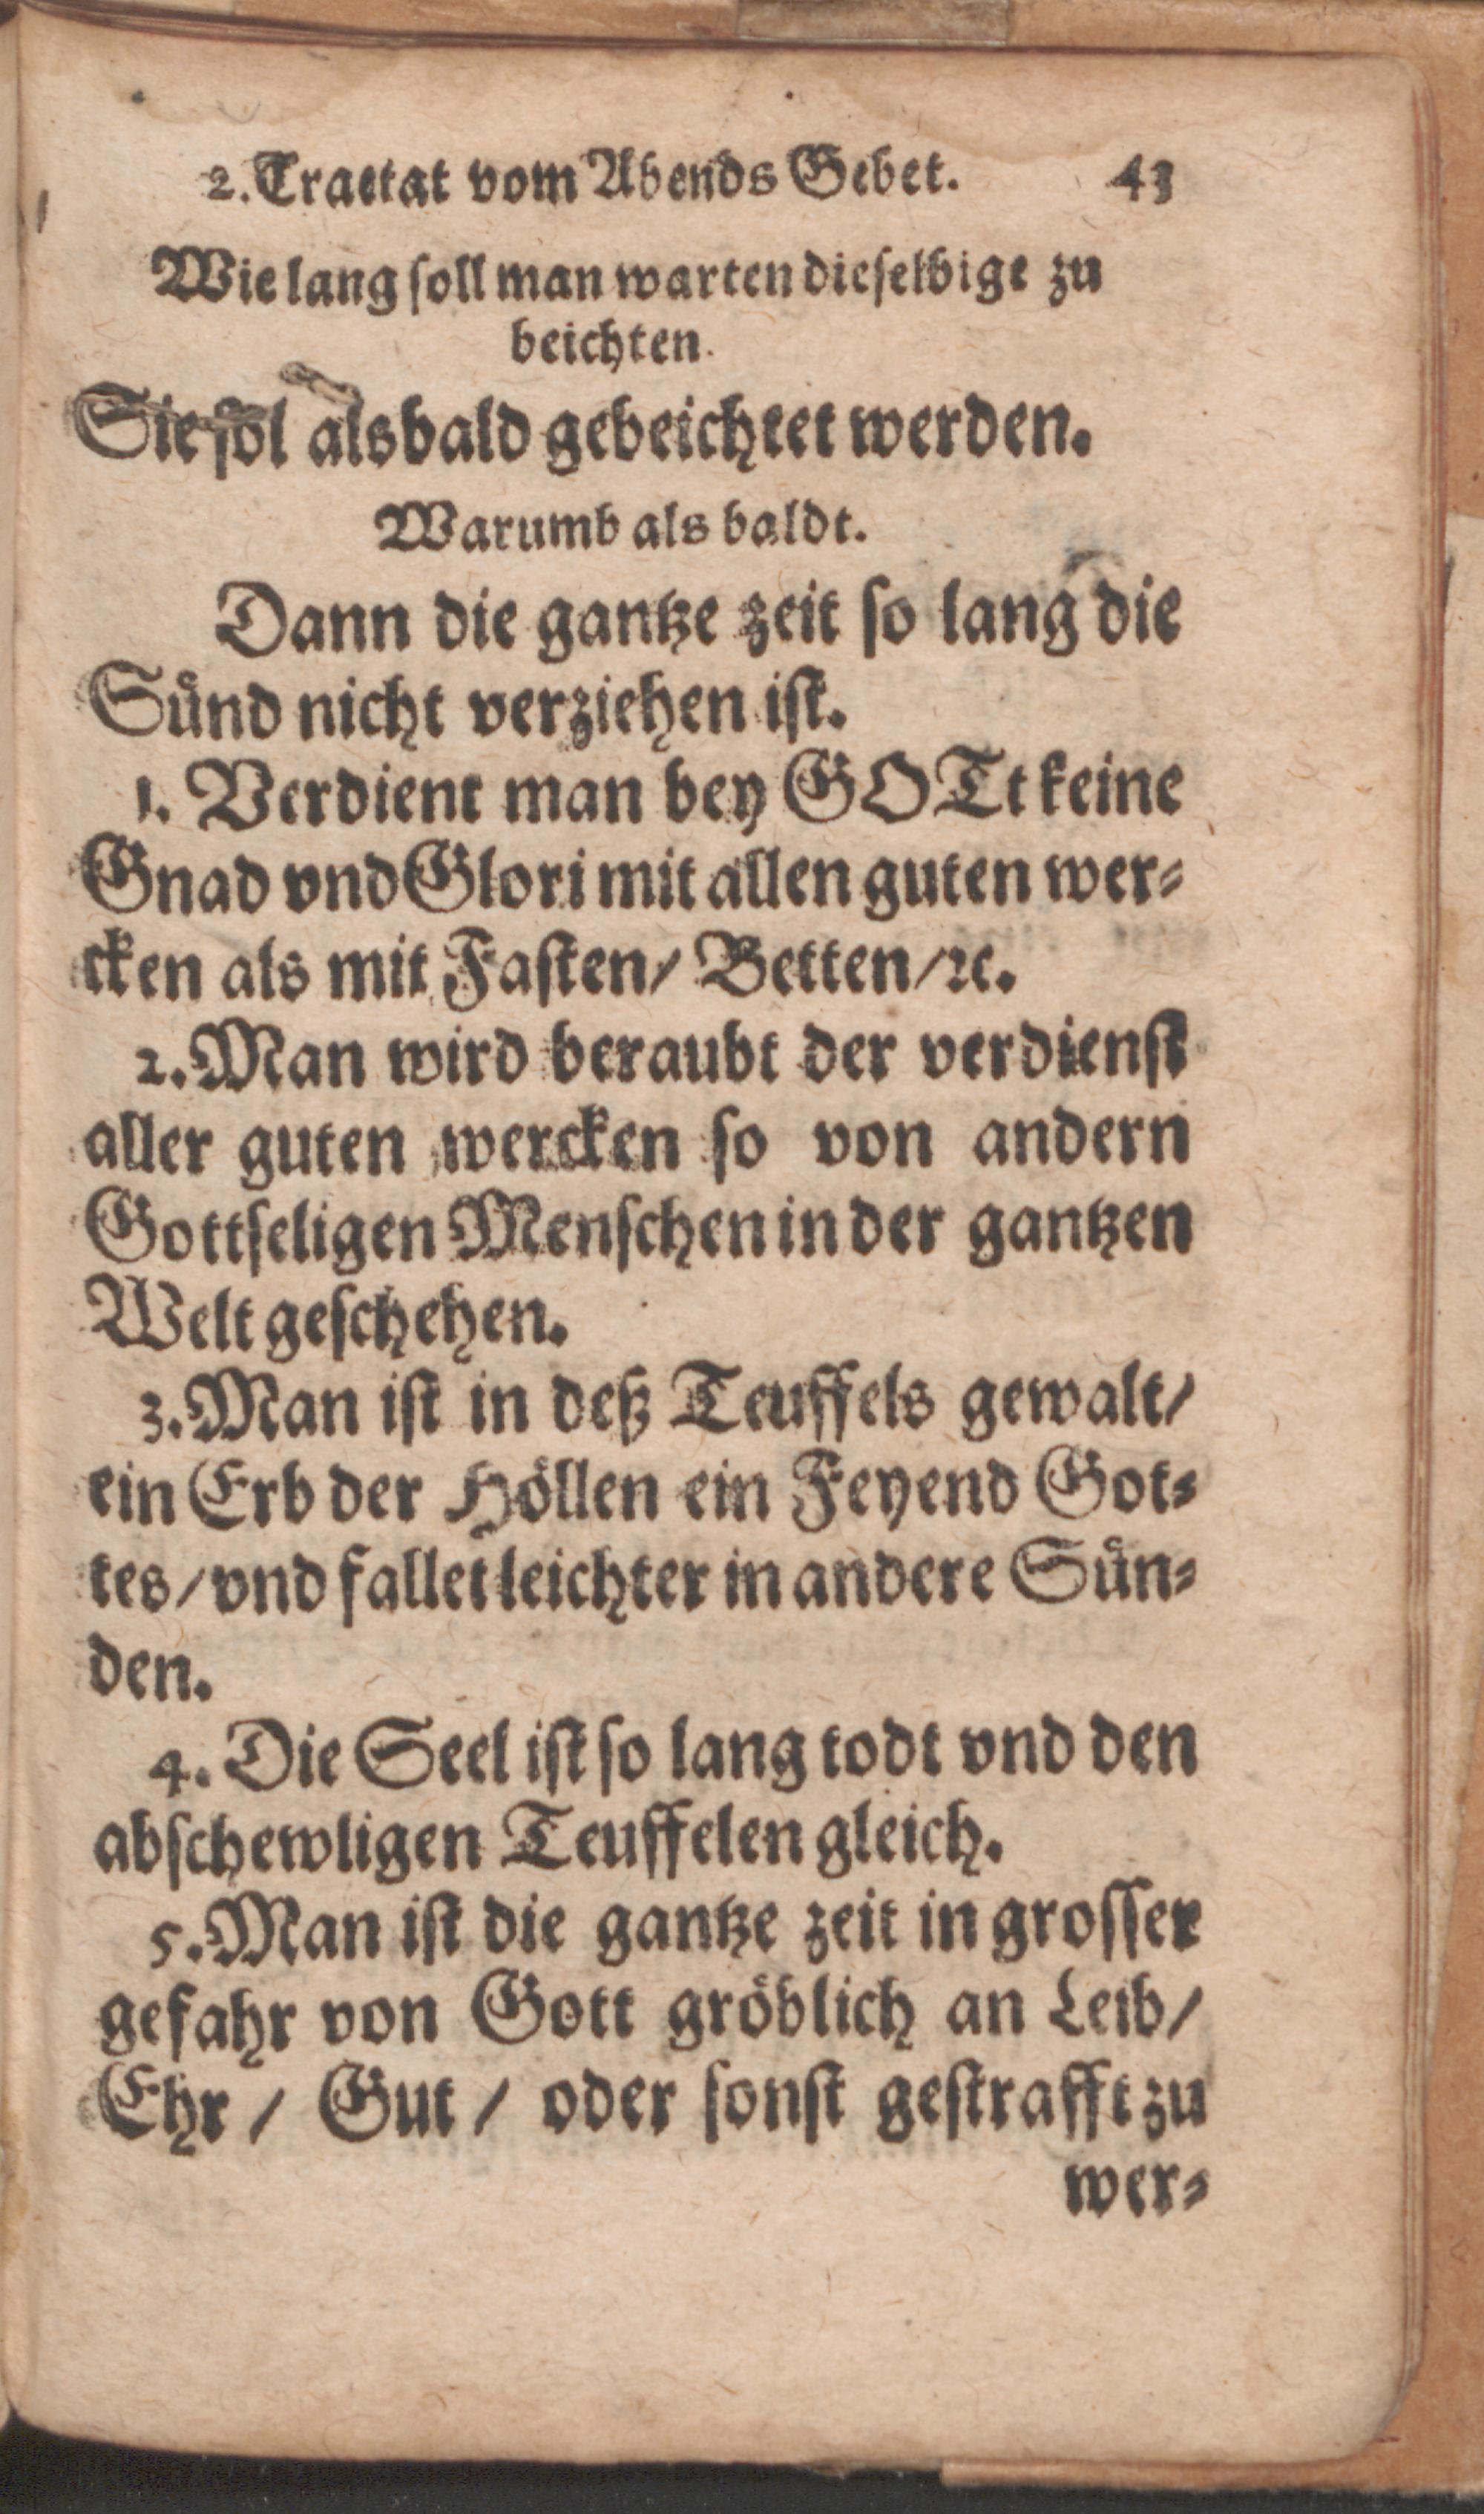 2. Tractat vom Abends Gebet. 43
Wie lang soll man warten dieselbige zu
beichten.
Sie sol alsbald gebeichtet werden.
Warumb als baldt.
Dann die gantze zeit so lang die
Sůnd nicht verziehen ist.
1. Verdient man bey GOTt keine
Gnad vnd Glori mit allen guten wer⸗
cken als mit Fasten/ Betten/ ꝛc.
2. Man wird beraubt der verdienst
aller guten wercken so von andern
Gottseligen Menschen in der gantzen
Welt geschehen.
3. Man ist in deß Teuffels gewalt/
ein Erb der Höllen ein Feyend Got⸗
tes/ vnd fallet leichter in andere Sůn⸗
den.
4. Die Seel ist so lang todt vnd den
abschewligen Teuffelen gleich.
5. Man ist die gantze zeit in grosser
gefahr von Gott gröblich an Leib/
Ehr/ Gut/ oder sonst gestrafft zu
wer⸗